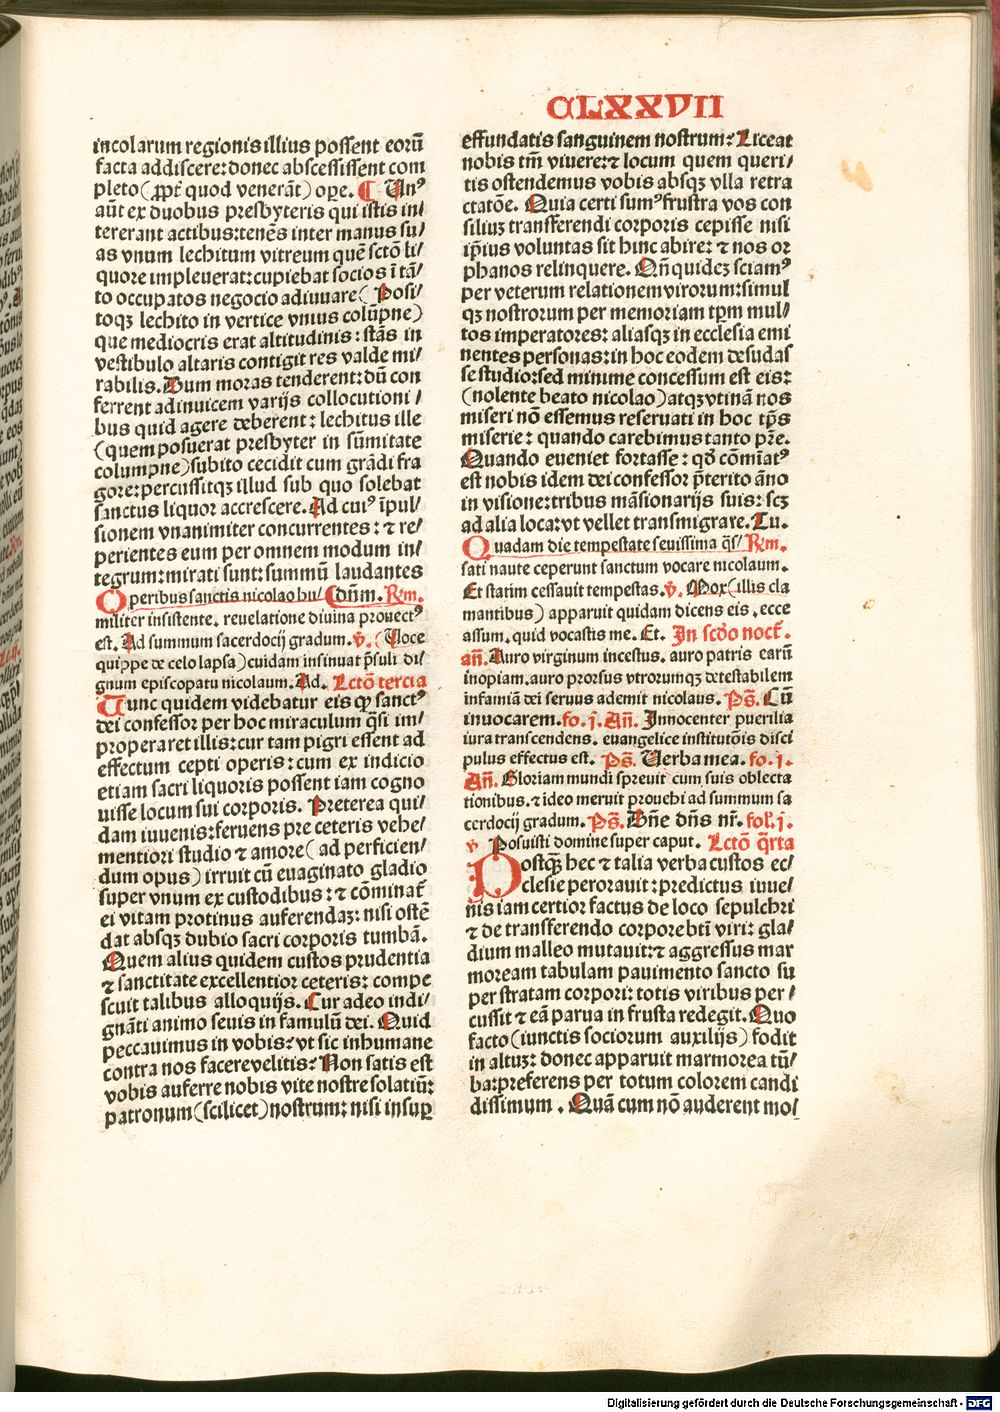 CLXXVII
incolarum regionis illius possent eorū
facta addiscere: donec abscessissent com
pleto (ꝓpt̄ quod venerāt) oꝑe. ¶ Unꝰ
aūt ex duobus presbyteris qui istis in/
tererant actibus: tenēs inter manus su/
as vnum lechitum vitreum quē sctō li/
quore impleuerat: cupiebat socios ī tā/
to occupatos negocio adiuuare (Posi/
toqꝫ lechito in vertice vnius colūpne)
que mediocris erat altitudinis: stās in
vestibulo altaris contigit res valde mi/
rabilis. Dum moras tenderent: dū con
ferrent adinuicem varijs collocutioni/
bus quid agere deberent: lechitus ille
(quem posuerat presbyter in sūmitate
columpne) subito cecidit cum grādi fra
gore: percussitqꝫ illud sub quo solebat
sanctus liquor accrescere. Ad cuiꝰ īpul/
sionem vnanimiter concurrentes: ⁊ re/
perientes eum per omnem modum in/
tegrum: mirati sunt: summū laudantes
Operibus sanctis nicolao hu/ ¶ dn̄m. Rm̄.
militer insistente. reuelatione diuina prouectꝰ
est. Ad summum sacerdocij gradum. v̄. (Uoce
quippe de celo lapsa) cuidam insinuat p̄suli di/
gnum episcopatu nicolaum. Ad. Lctō tercia
Tunc quidem videbatur eis ꝙ sanctꝰ
dei confessor per hoc miraculum q̄si im/
properaret illis: cur tam pigri essent ad
effectum cepti operis: cum ex indicio
etiam sacri liquoris possent iam cogno
uisse locum sui corporis. Preterea qui/
dam iuuenis: feruens pre ceteris vehe/
mentiori studio ⁊ amore (ad perficien/
dum opus) irruit cū euaginato gladio
super vnum ex custodibus: ⁊ cōminat̄
ei vitam protinus auferendaꝫ: nisi ostē
dat absqꝫ dubio sacri corporis tumbā.
Quem alius quidem custos prudentia
⁊ sanctitate excellentior ceteris: compe
scuit talibus alloquijs. Cur adeo indi/
gnāti animo seuis in famulū dei. Quid
peccauimus in vobis: vt sic inhumane
contra nos facere velitis? Non satis est
vobis auferre nobis vite nostre solatiū:
patronum (scilicet) nostrum: nisi insuꝑ
effundatis sanguinem nostrum? Liceat
nobis tm̄ viuere: ⁊ locum quem queri/
tis ostendemus vobis absqꝫ vlla retra
ctatōe. Quia certi sumꝰ frustra vos con
siliuꝫ transferendi corporis cepisse nisi
ip̄ius voluntas sit hinc abire: ⁊ nos or
phanos relinquere. Qn̄quidez sciamꝰ
per veterum relationem virorum: simul
qꝫ nostrorum per memoriam tp̄m mul/
tos imperatores: aliasqꝫ in ecclesia emi
nentes personas: in hoc eodem desudas
se studio: sed minime concessum est eis:
(nolente beato nicolao) atqꝫ vtinā nos
miseri nō essemus reseruati in hoc tp̄s
miserie: quando carebimus tanto pr̄e.
Quando eueniet fortasse: qđ cōmīatꝰ
est nobis idem dei confessor p̄terito āno
in visione: tribus māsionarijs suis: scꝫ
ad alia loca: vt vellet transmigrare. Tu.
Quadam die tempestate seuissima q̄s/ Rm̄.
sati naute ceperunt sanctum vocare nicolaum.
Et statim cessauit tempestas. v̄. Mox (illis cla
mantibus) apparuit quidam dicens eis. ecce
assum. quid vocastis me. Et. In scd̄o noct̄.
an̄. Auro virginum incestus. auro patris earū
inopiam. auro prorsus vtrorumqꝫ detestabilem
infamiā dei seruus ademit nicolaus. Ps̄. Cū
inuocarem. fo. j. An̄. Innocenter puerilia
iura transcendens. euangelice institutōis disci
pulus effectus est. Ps̄. Uerba mea. fo. j.
An̄. Gloriam mundi spreuit cum suis oblecta
tionibus. ⁊ ideo meruit prouehi ad summum sa
cerdocij gradum. Ps̄. Dn̄e dn̄s nr̄. fol. j.
v̄ Posuisti domine super caput. Lctō q̄rta
Postqꝫ hec ⁊ talia verba custos ec/
clesie perorauit: predictus iuue/
nis iam certior factus de loco sepulchri
⁊ de transferendo corpore bt̄i viri: gla/
dium malleo mutauit: ⁊ aggressus mar
moream tabulam pauimento sancto su
per stratam corpori: totis viribus per/
cussit ⁊ eā parua in frusta redegit. Quo
facto (iunctis sociorum auxilijs) fodit
in altuꝫ: donec apparuit marmorea tū/
ba: preferens per totum colorem candi
dissimum. Quā cum nō auderent mo/
Digitalisierung gefördert durch die Deutsche Forschungsgemeinschaft - DFG